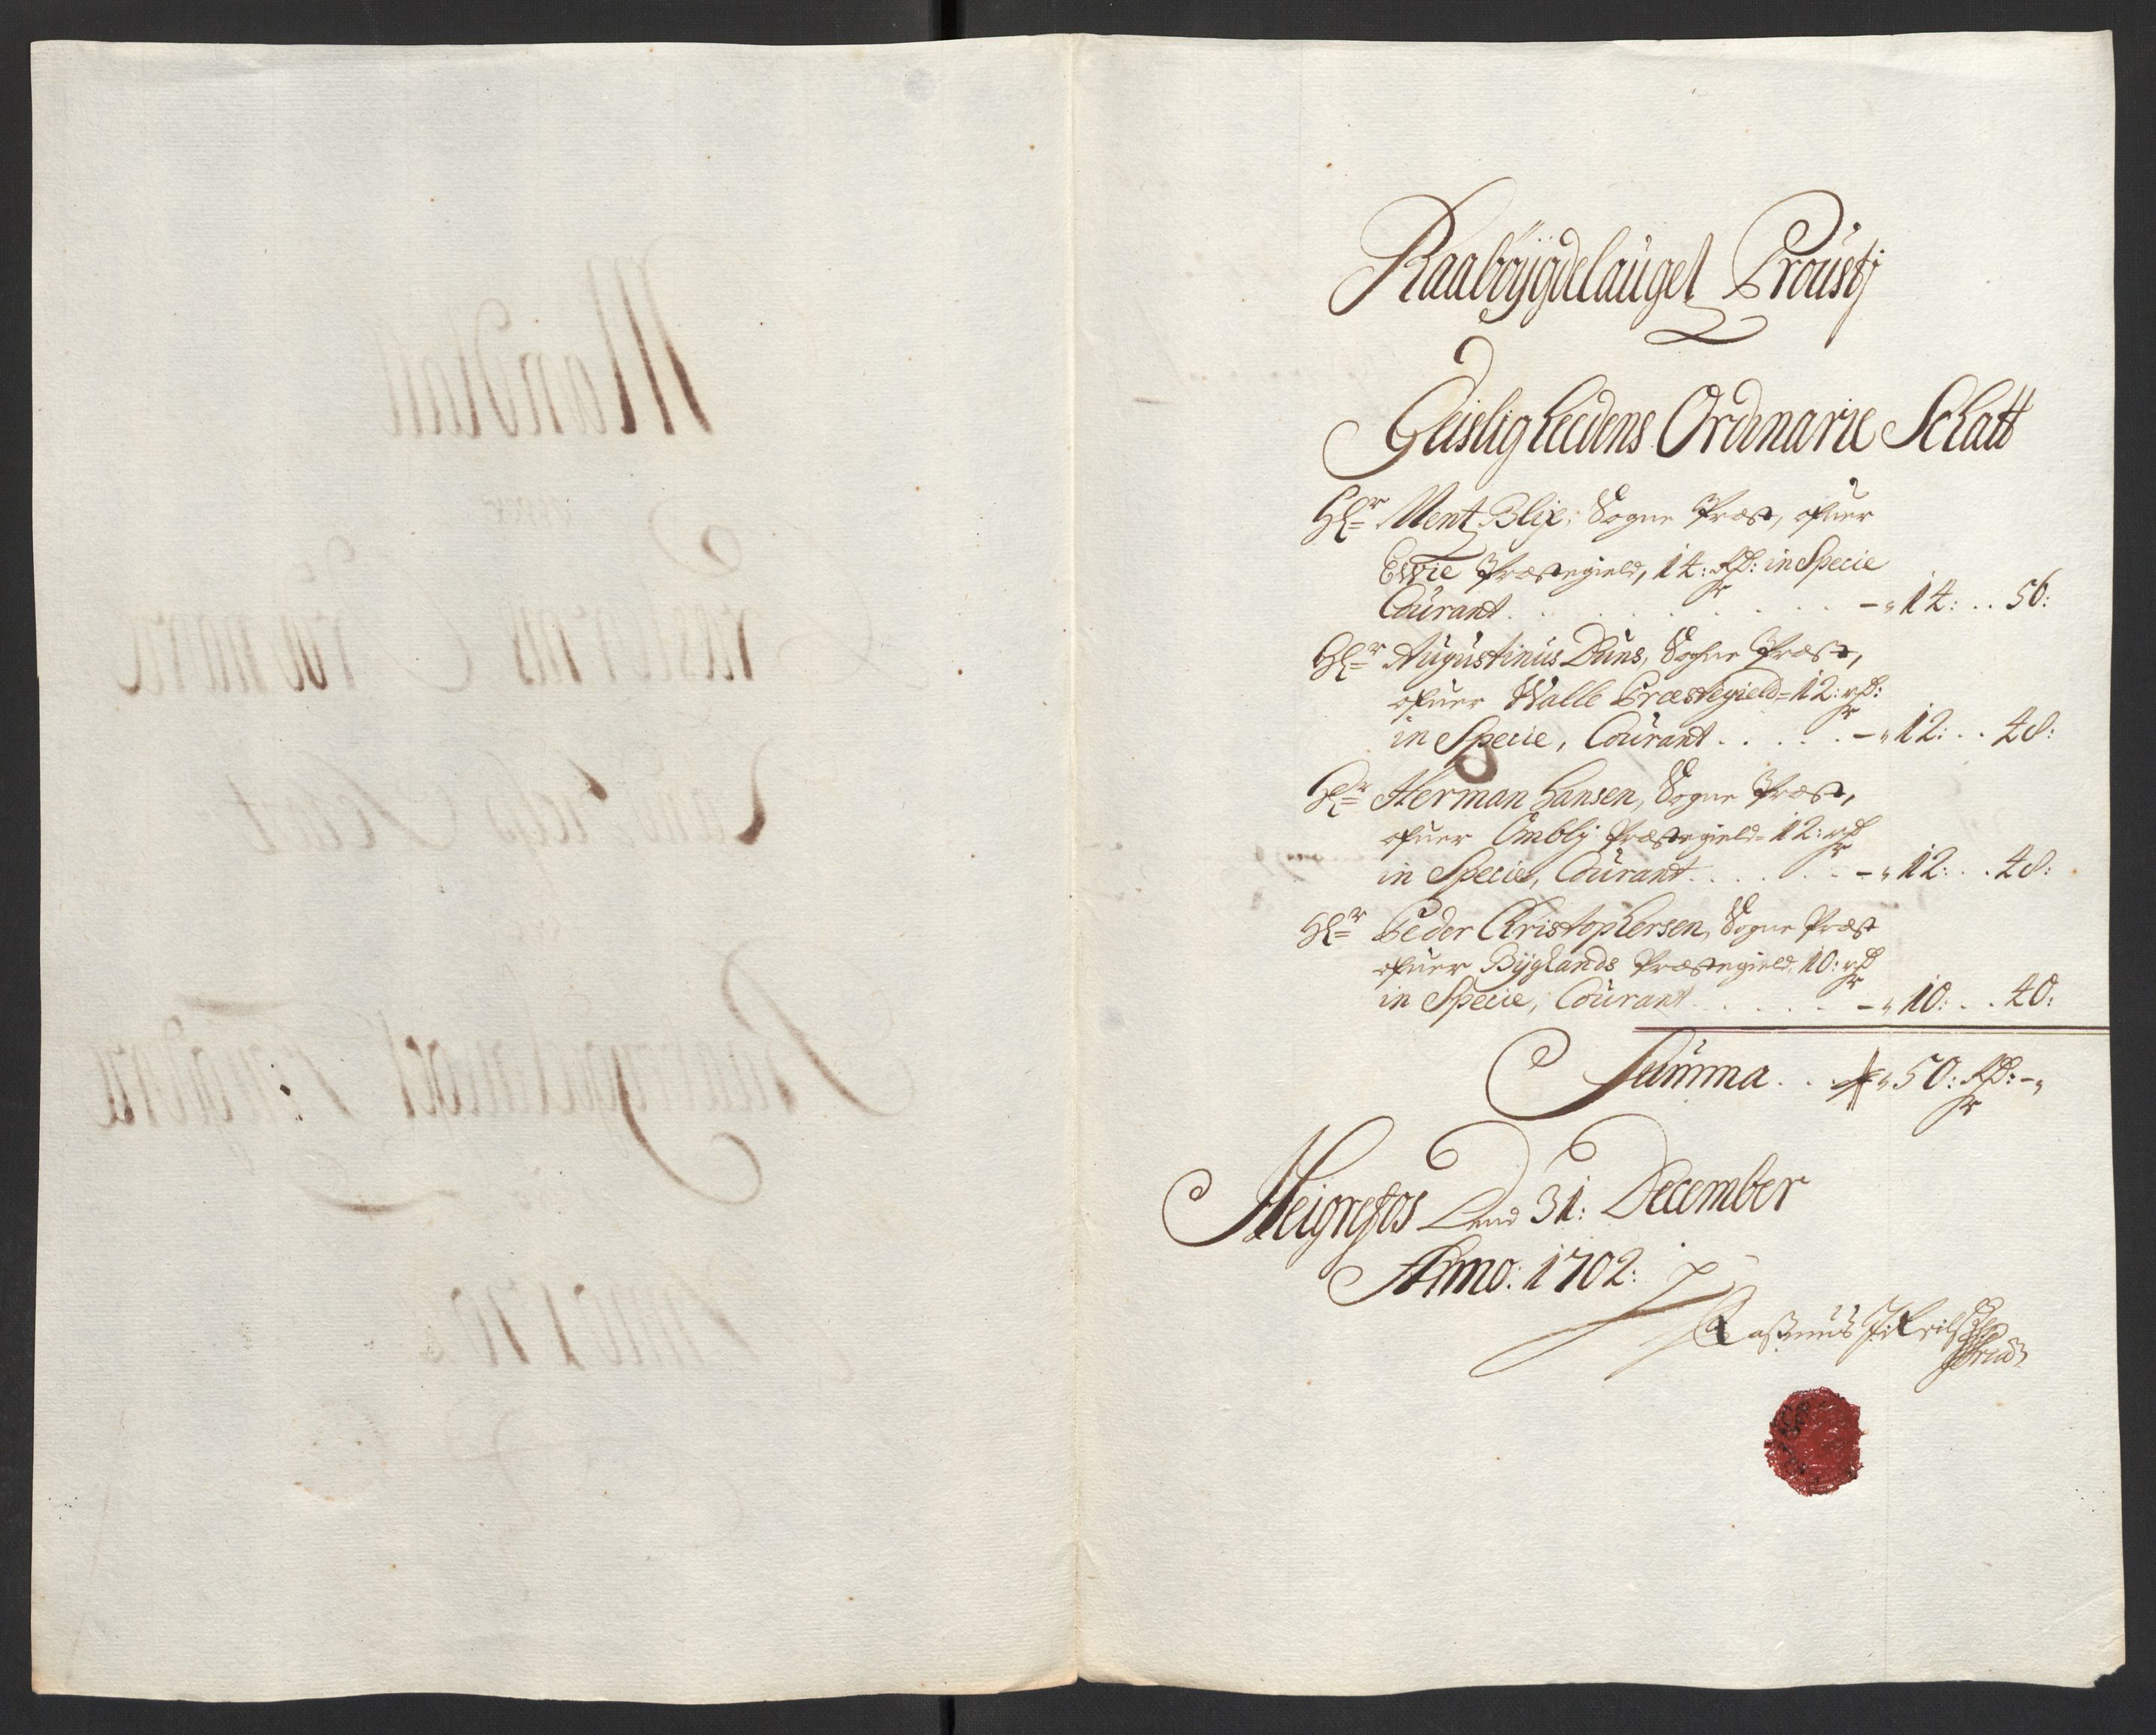 Raaböÿgdelauget Proustj
Geislighedens Ordinarie Schatt
Hr Mentz Blix: Sogne Præst, ofuer
Ewie Præstegield, 14: Rd: in Specie
Courant . . . . . . . . . - „ 14: . . 56:
Hr Augustinus Duns, Sogne Præst,
ofuer Walle Præstegield = 12: rd:
in Specie, Courant . . . . . - „ 12: . . 48:
Hr Herman Hansen, Sogne Præst,
ofuer Omblj Præstegield = 12: rd
in Specie, Courant . . . . . . - „ 12: . . 48:
Hr Peder Christophersen, Sogne Præst
ofuer Bÿglands Præstegield 10: rd
in Specie, Courant . . . . . - „ 10: . . 40:
Summa . . . „ 50: Rd: - „
Heigrefos Dend 31: December
Anno: 1702:
Rasmus